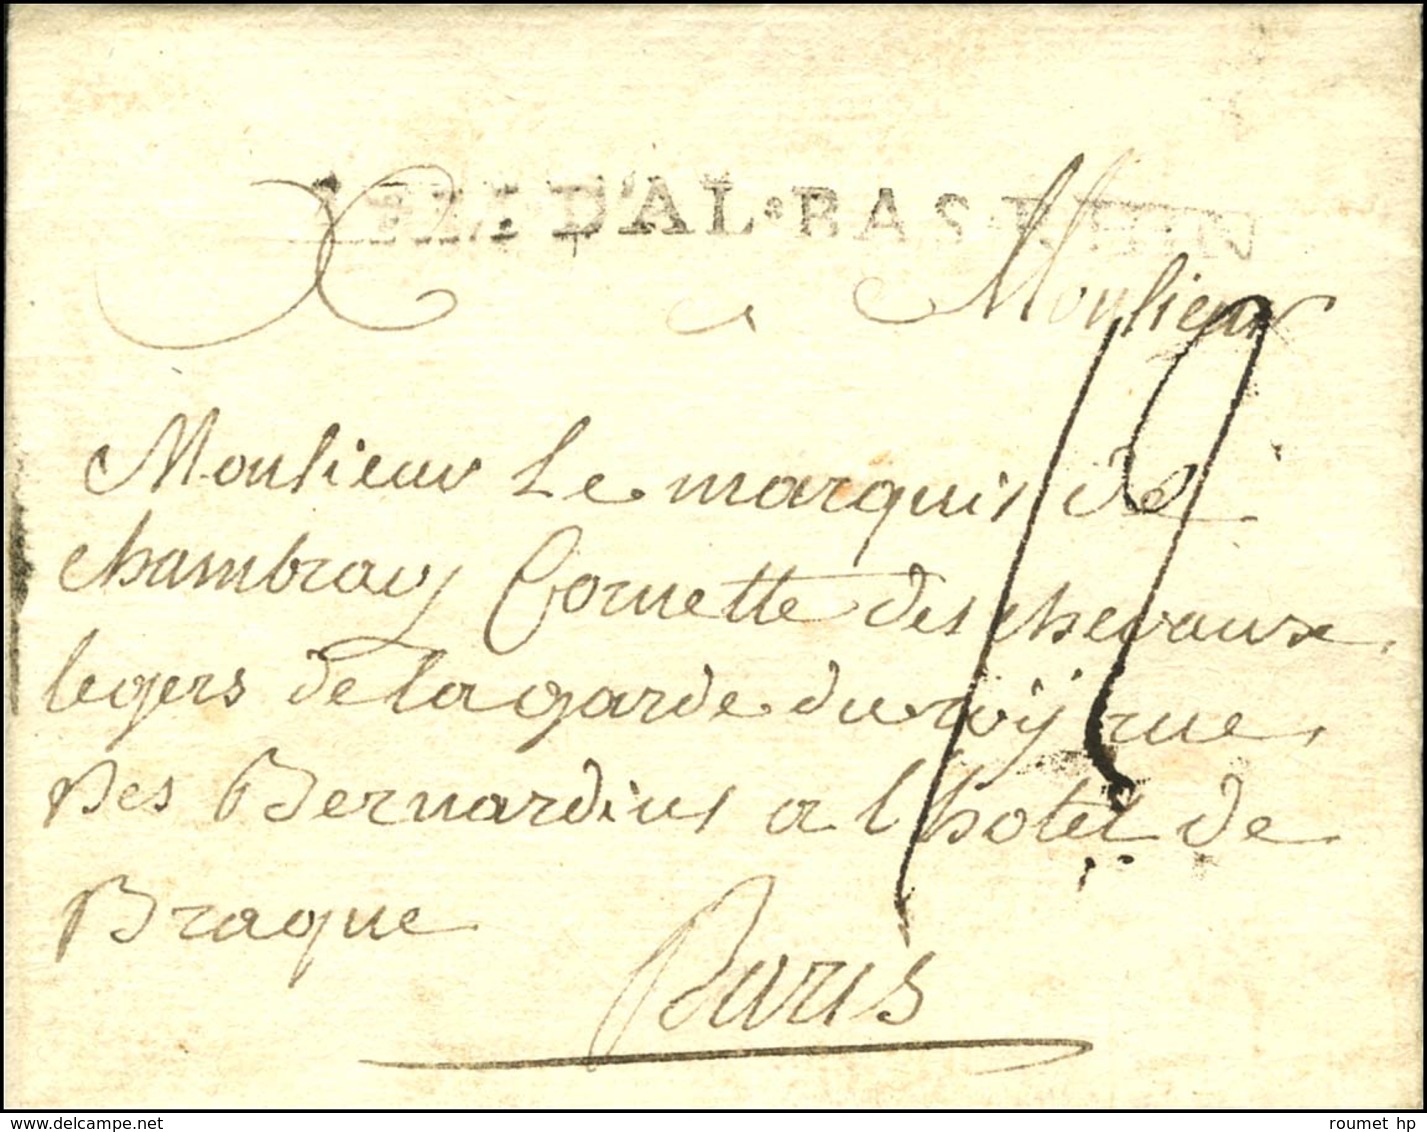 D'AL•BAS•RHIN
Monsieur
12
Monsieur Le marquis de
chambray Cornette des chevaux
legers de la garde du roÿ rue
des Bernardins a l'hotel de
Braque
Paris
roumet hp